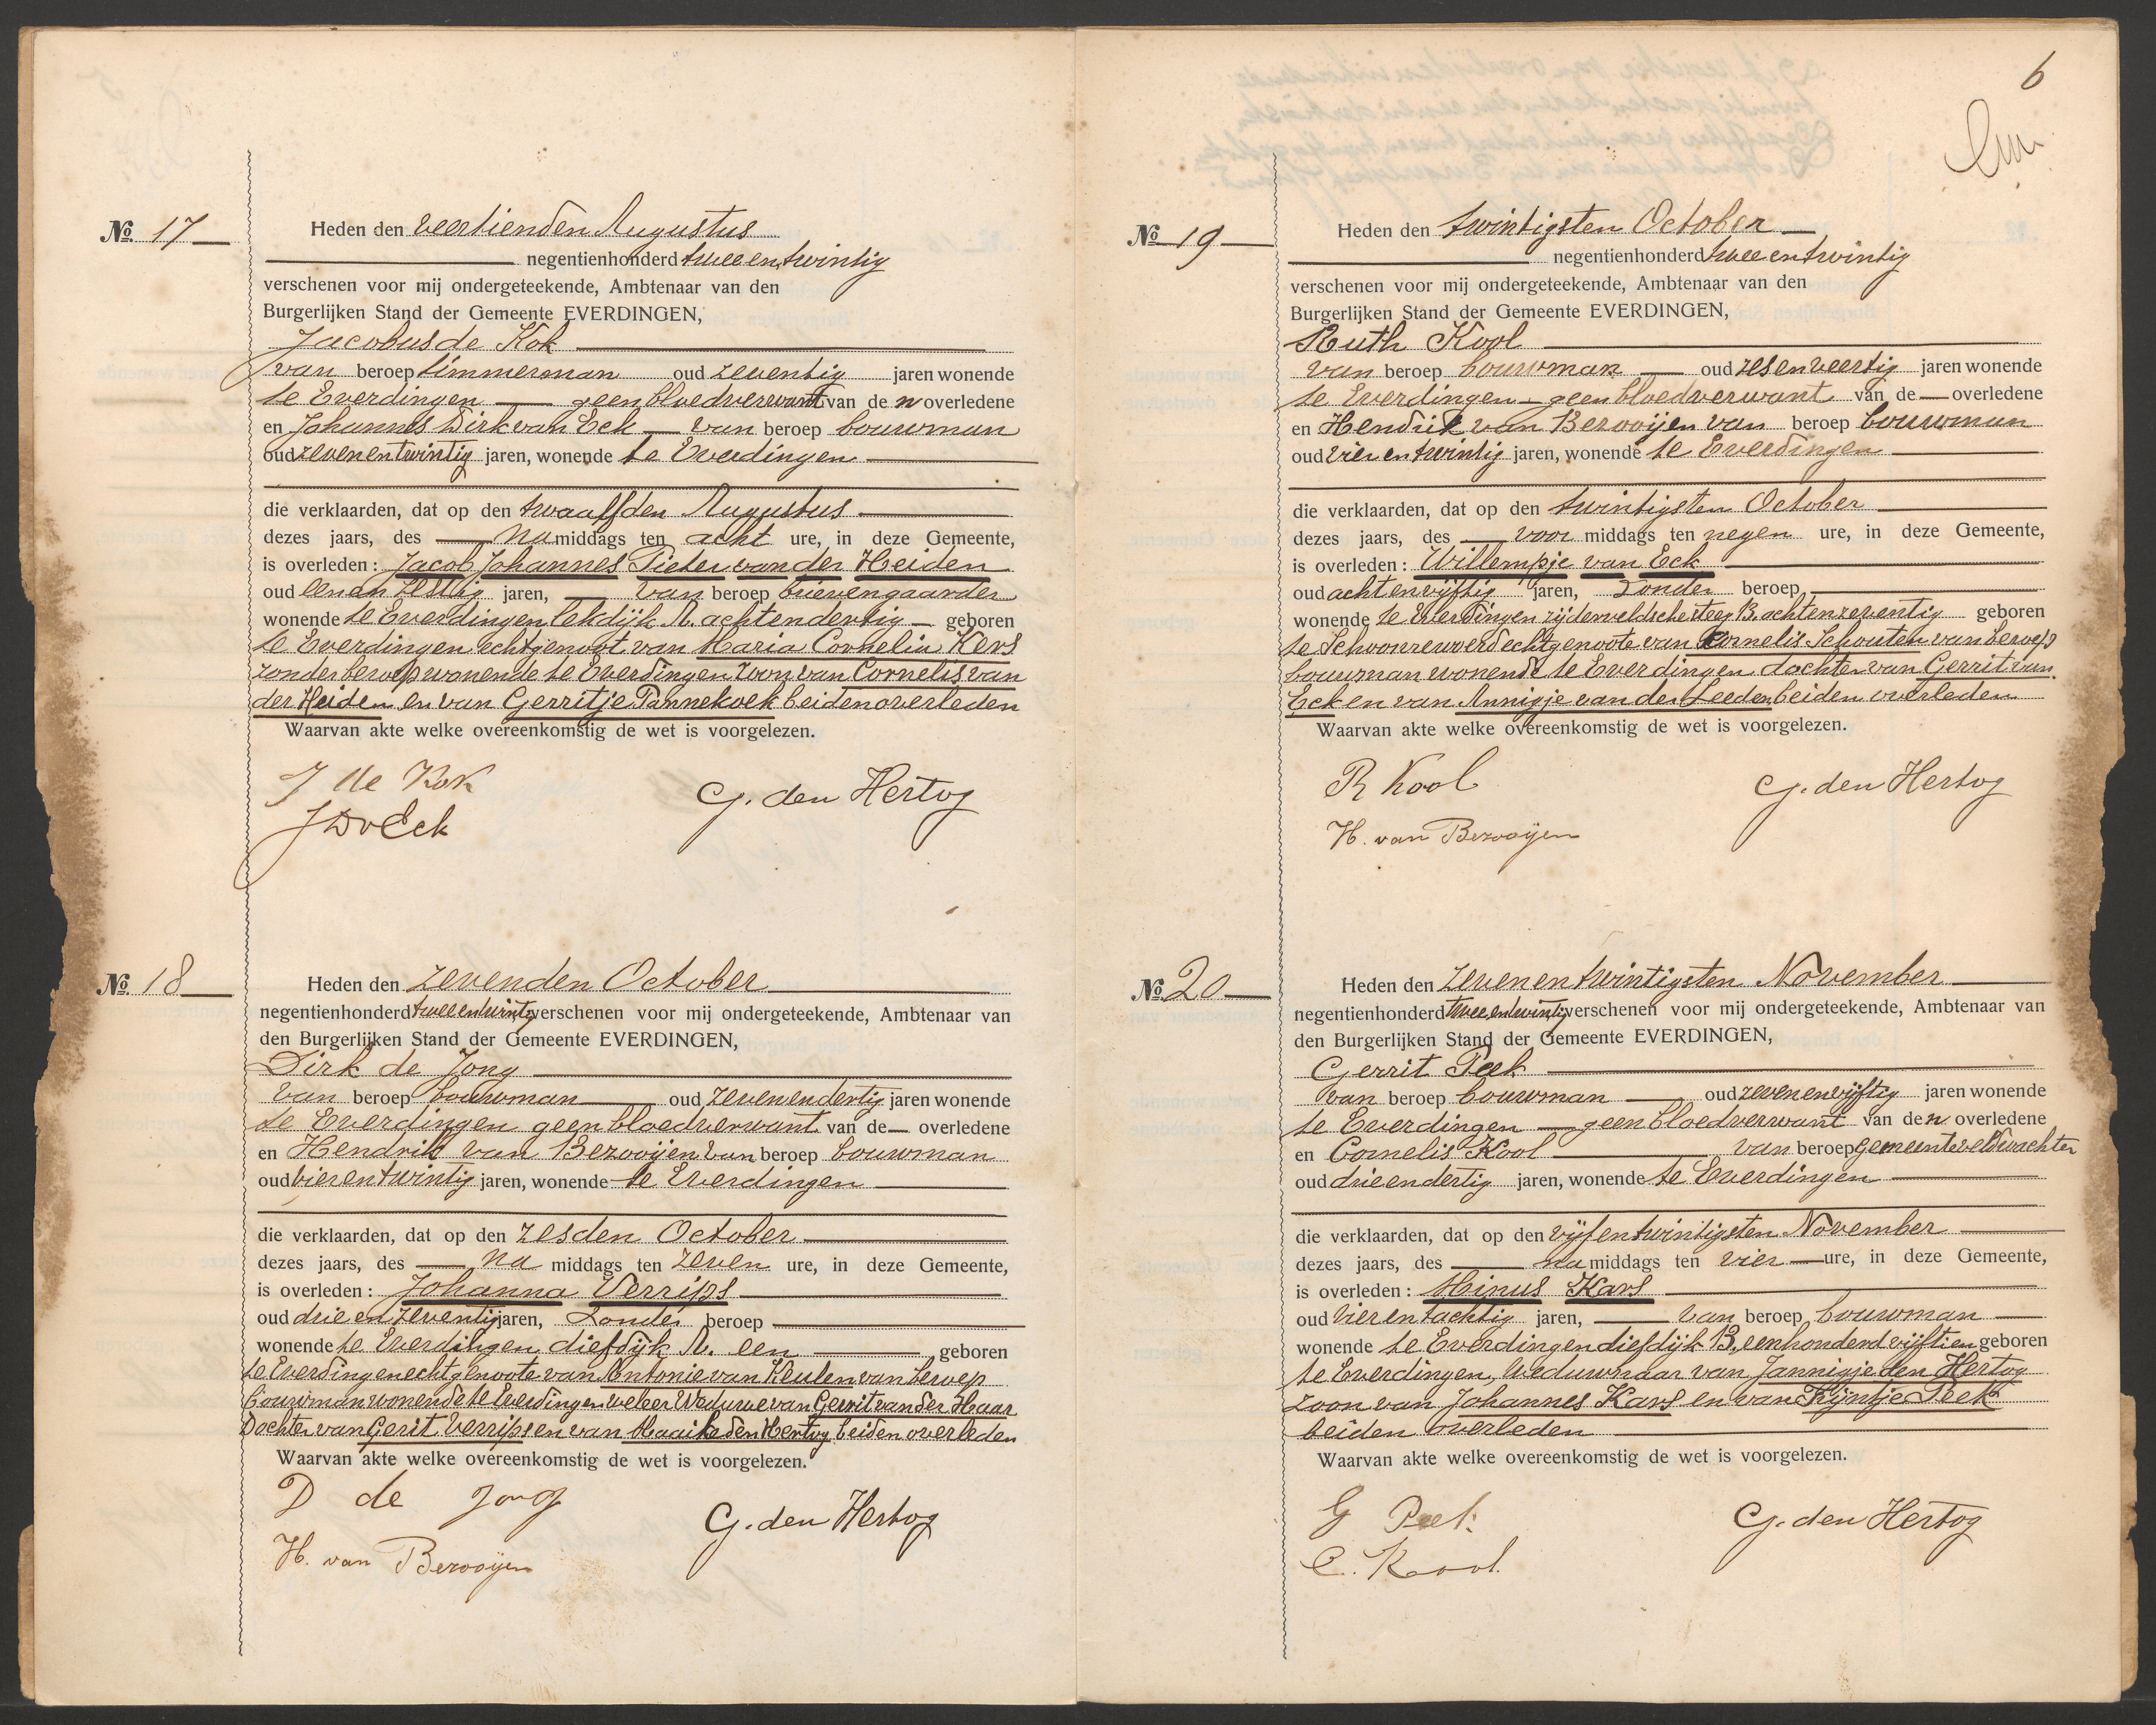 Nº 17
Heden den veertienden Augustus
negentienhonderd twee en twintig
verschenen voor mij ondergeteekende, Ambtenaar van den
Burgerlijken Stand der Gemeente EVERDINGEN,
Jacobus de Kok
van beroep timmerman oud zeventig jaren wonende
te Everdingen geen bloedverwant van den overledene
en Johannes Dirk van Eck van beroep bouwman
oud zevenentwintig jaren, wonende te Everdingen
die verklaarden, dat op den twaalfden Augustus
dezes jaars, des namiddags ten acht ure, in deze Gemeente,
is overleden: Jacob Johannes Pieter van der Heiden
oud een en zestig jaren, van beroep brievengaarder
wonende te Everdingen lekdijk A. achtendertig geboren
te Everdingen echtgenoot van Maria Cornelia Kers
zonder beroep wonende te Everdingen zoon van Cornelis van
der Heiden en van Gerritje Pannekoek beiden overleden
Waarvan akte welke overeenkomstig de wet is voorgelezen.
J de Kok
JDvEck
G. den Hertog
Nº 18
Heden den zevenden October
negentienhonderd twee en twintig verschenen voor mij ondergeteekende, Ambtenaar van
den Burgerlijken Stand der Gemeente EVERDINGEN,
Dirk de Jong
van beroep bouwman oud zevenendertig jaren wonende
te Everdingen geen bloedverwant van de overledene
en Hendrik van Bezooijen van beroep bouwman
oud vierentwintig jaren, wonende te Everdingen
die verklaarden, dat op den zesden October
dezes jaars, des na middags ten zeven ure, in deze Gemeente,
is overleden: Johanna Verrips
oud drie en zeventig jaren, Zonder beroep
wonende te Everdingen diefdijk A. een geboren
te Everdingen echtgenoote van Antonie van Keulen van beroep
bouwman wonende te Everdingen weleer Weduwe van Gerrit van der Haar
Dochter van Gerit Verrips en van Maaike den Hertog beiden overleden
Waarvan akte welke overeenkomstig de wet is voorgelezen.
D de Jong
G. den Hertog
H. van Bezooijen
6
Nº 19
Heden den twintigsten October
negentienhonderd twee en twintig
verschenen voor mij ondergeteekende, Ambtenaar van den
Burgerlijken Stand der Gemeente EVERDINGEN,
Ruth Kool
van beroep bouwman oud zesenveertig jaren wonende
te Everdingen geen bloedverwant van de overledene
en Hendrik van Bezooijen van beroep bouwman
oud vierentwintig jaren, wonende te Everdingen
die verklaarden, dat op den twintigsten October
dezes jaars, des voor middags ten negen ure, in deze Gemeente,
is overleden: Willempje van Eck
oud achtenvijftig jaren, Zonder beroep
wonende te Everdingen zijderveldsche steeg B. achtenzeventig geboren
te Schoonrewoerd echtgenoote van Kornelis Schouten van beroep
bouwman wonende te Everdingen dochter van Gerrit van
Eck en van Annigje van der Leeden beiden overleden
Waarvan akte welke overeenkomstig de wet is voorgelezen.
R Kool
G. den Hertog
H. van Bezooijen
Nº 20
Heden den zevenentwintigsten November
negentienhonderd twee en twintig verschenen voor mij ondergeteekende, Ambtenaar van
den Burgerlijken Stand der Gemeente EVERDINGEN,
Gerrit Peek
van beroep bouwman oud zevenenvijftig jaren wonende
te Everdingen geen bloedverwant van den overledene
en Cornelis Kool van beroep gemeenteveldwachter
oud drieendertig jaren, wonende te Everdingen
die verklaarden, dat op den vijfentwintigsten November
dezes jaars, des na middags ten vier ure, in deze Gemeente,
is overleden: Minus Kars
oud vierentachtig jaren, van beroep bouwman
wonende te Everdingen diefdijk B, eenhonderd vijftien geboren
te Everdingen, Weduwnaar van Jannigje den Hertog
zoon van Johannes Kars en van Krijntje Peek
beiden overleden
Waarvan akte welke overeenkomstig de wet is voorgelezen.
G Peek
G. den Hertog
C. Kool